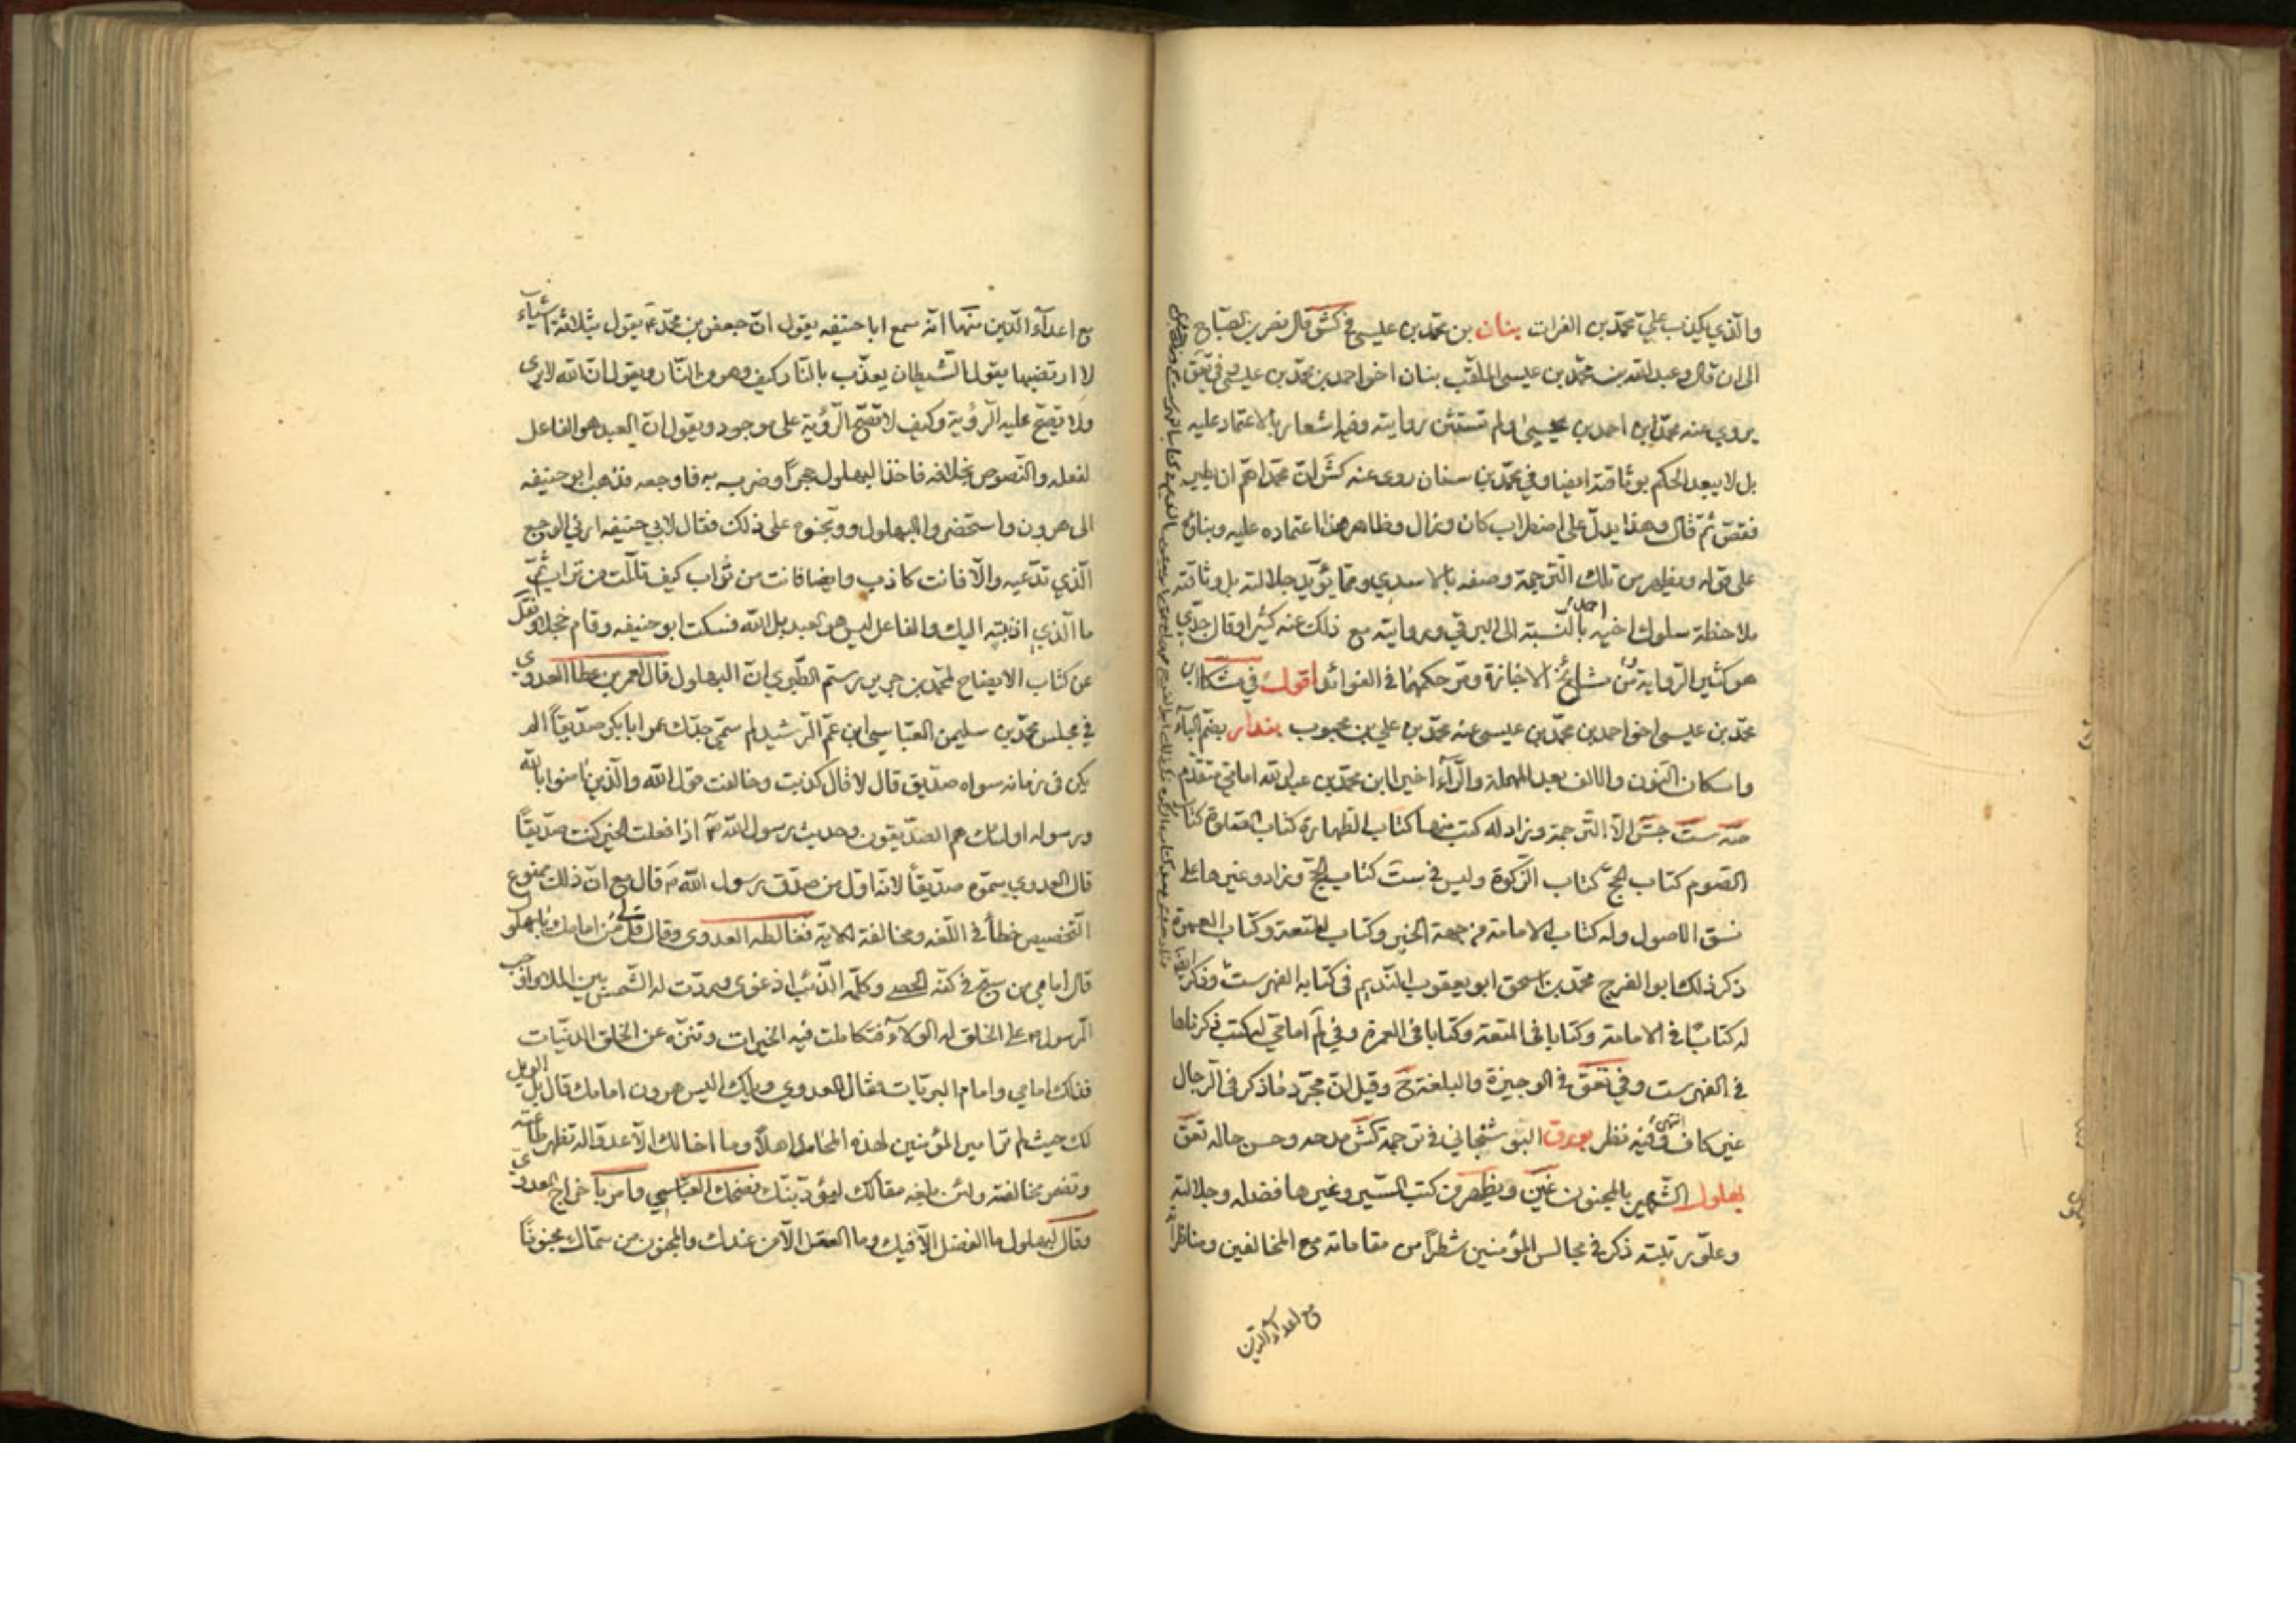 والذي يكذب علي محمد بن الفرات بنان بن محمد بن عيسى في كش قال نصر بن الصباح
الى ان قال وعبد الله بن محمد بن عيسى الملقب بنان اخو احمد بن محمد بن عيسى وفي تعق
يروي عنه محمد بن احمد بن يحيى ولم تستثن روايته وفيه اشعار بالاعتماد عليه
بل لا يبعد الحكم بوثاقته ايضا وفي محمد بن سنان روى عنه كش ان محمدا هم ان يطير
فقص ثم قال وهذا يدل على اضطراب كان وزال وظاهر هذا اعتماده عليه وبناؤه
على قوله ويظهر من تلك الترجمة وصفه بالاسدي ومما يؤيد جلالته بل وثاقته
ملاحظة سلوك اخيه احمد بالنسبة الى البرقي وروايته مع ذلك عنه كثيرا وقال جدي
هو كثير الرواية من مشايخ الاجازة ومر حكمهما في الفوائد اقول في مشكا ابن
محمد بن عيسى اخو احمد بن محمد بن عيسى عنه محمد بن علي بن محبوب بندار بضم الباء
واسكان النون والالف بعد المهملة والراء اخيرا ابن محمد بن عبد الله امامي متقدم
صه ست جش الا الترجمة وزاد له كتب منها كتاب الطهارة كتاب الصلوة كتاب
الصوم كتاب الحج كتاب الزكوة وليس في ست كتاب الحج وزاد وغيرها على
نسق الاصول وله كتاب الامامة من جهة الخبر وكتاب المتعة وكتاب العمرة
ذكر ذلك ابو الفرج محمد بن اسحق ابو يعقوب النديم في كتابه الفهرست وذكر ايضا
له كتابا في الامامة وكتابا في المتعة وكتابا في العمرة وفي لم امامي له كتب ذكرناها
في الفهرست وفي تعق في الوجيزة والبلغة ح وقيل ان مجرد ما ذكر في الرجال
غير كاف انتهى وفيه نظر بورق البوشنجاني في ترجمة كش مدحه وحسن حاله تعق
بهلول الشهير بالمجنون غير ويظهر من كتب السير وغيرها فضله وجلالته
وعلو رتبته ذكر في مجالس المؤمنين شطرا من مقاماته مع المخالفين ومناظراته
مع اعداء الدين
مع اعداء الدين منها انه سمع ابا حنيفه يقول ان جعفر بن محمد ع يقول بثلاثة اشياء
لا ارتضيها يقول الشيطان يعذب بالنار كيف وهو من النار ويقول ان الله لا يرى
ولا تصح عليه الرؤية وكيف لا تصح الرؤية على موجود ويقول ان العبد هو الفاعل
لفعله والنصوص بخلافه فاخذ البهلول حجرا وضربه به فاوجعه فذهب ابو حنيفه
الى هرون واستحضروا البهلول ووبخوه على ذلك فقال لابي حنيفه ارني الوجع
الذي تدعيه والا فانت كاذب وايضا فانت من تراب كيف تألمت من تراب ثم
ما الذي اذنبته اليك والفاعل ليس هو العبد بل الله فسكت ابو حنيفه وقام خجلا ونقل
عن كتاب الايضاح لمحمد بن جرير بن رستم الطبري ان البهلول قال لعمر بن عطا العدوي
في مجلس محمد بن سليمن العباسي ابن عم الرشيد لم سمي جدك عمر ابا بكر صديقا الم
يكن في زمانه سواه صديق قال لا قال كذبت وخالفت قول الله والذين امنوا بالله
ورسوله اولئك هم الصديقون وحديث رسول الله ص اذا فعلت الخير كنت صديقا
قال العدوي سموه صديقا لانه اول من صدق رسول الله ص قال مع ان ذلك ممنوع
التخصيص خطأ في اللغه ومخالفة للاية فغالطه العدوي وقال قل لي من امامك يا بهلول
قال امامي من سبح في كفه الحصى وكلمه الذئب اذ عوى وردت له الشمس بين الملا واوجب
الرسول ص على الخلق له الولاء فتكاملت فيه الخيرات وتنزه عن الخلق الدنيات
فذلك امامي وامام البريات فقال العدوي ويلك اليس هرون امامك قال بل الويل
لك حيث لم تر امير المؤمنين لهذه المحامد اهلا وما اخالك الا عدوا له تظهر طاعته
وتضمر مخالفته ولئن بلغه مقالك ليؤدبنك فضحك العباسي وامر باخراج العدوي
وقال لبهلول ما الفضل الا فيك وما العقل الا من عندك والمجنون من سماك مجنونا